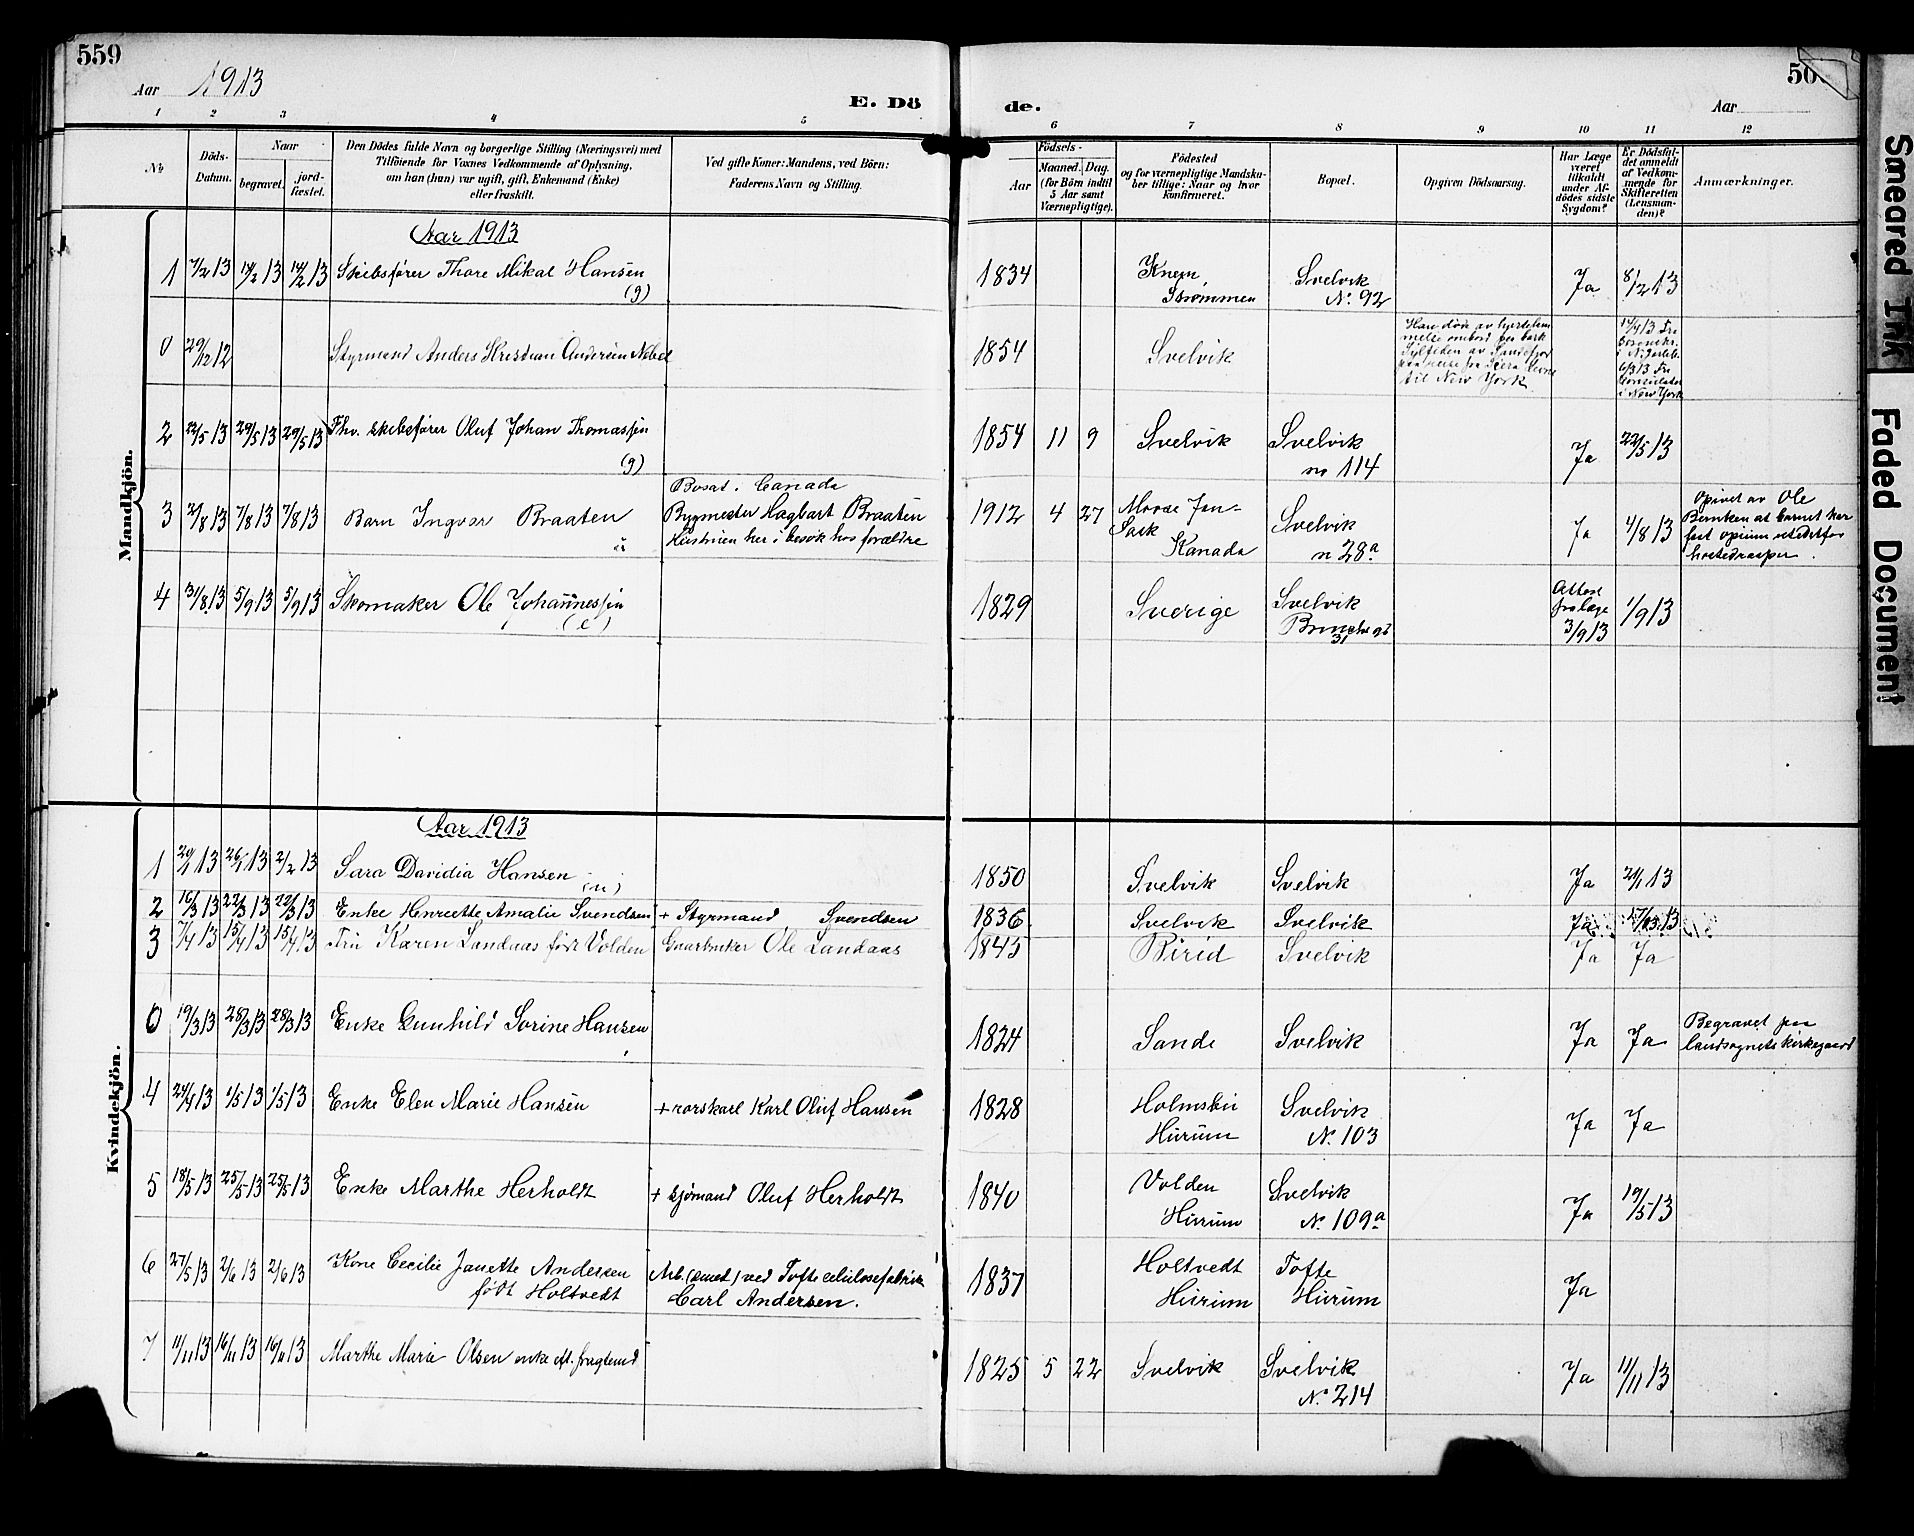 559
Aar 1913
E. Dö
de.
Aar
1 2 3 4 5
6 7 8 9 10 11 12
No
Döds-Datum.
Naar
begravet.
jord-fæstet.
Den Dödes fulde Navn og borgerlige Stilling (Næringsvei) med
Tilföiende for Voxnes Vedkommende af Oplysning,
om han (hun) var ugift, gift, Enkemand (Enke)
eller fraskilt.
Ved gifte Koner: Mandens, ved Börn:
Faderens Navn og Stilling.
Födsels-
Aar
Maaned. Dag.
(for Börn indtil
5 Aar samt
Værnepligtige).
Födested
og for værnepligtige Mandska-
ber tillige: Naar og hvor
konfirmeret.
Bopæl.
Opgiven Dödsaarsag.
Har Læge
været
tilkaldt
under Af-
dödes sidste
Sygdom?
Er Dödsfal-
det anmeldt
af Vedkom-
mende for
Skifteretten
(Lensman-
den)?
Anmærkninger.
Mandkjön.
Aar 1913
1 7/2 13 14/2 13 14/2 13 Skibsfører Thore Mikal Hansen (g) 1834 Knem Strømmen Svelvik No. 92 Ja 8/2 13
0 29/12 12 Styrmand Anders Kristian Andersen Nobel 1854 Svelvik
til New York
i New York
2 22/5 13 29/5 13 29/5 13 Fhv. skibsfører Oluf Johan Thomassen (g) 1854 11 9 Svelvik Svelvik no 114 Ja 22/5 13
3 2/8 13 7/8 13 7/8 13 Barn Ingvar Braaten
Bosat i Canada
Bygmester Hagbart Braaten
Hustruen her i besøk hos forældre
1912 4 27 Moose Jaw Sask Kanada Svelvik n 28a Ja 4/8 13
4 31/8 13 5/9 13 5/9 13 Skomaker Ole Johannessen (e) 1829 Sverige Svelvik 31 Attest fra læge 3/9 13 1/9 13
Kvindekjön.
Aar 1913
1 13 26/1 13 2/2 13 Sara Davidia Hansen (u) 1850 Svelvik Svelvik Ja 21/1 13
2 16/3 13 22/3 13 22/3 13 Enke Henriette Amalie Svendsen + Styrmand Svendsen 1836 Svelvik Svelvik Ja 17/3 13
3 7/4 13 15/4 13 15/4 13 Fru Karen Landaas født Volden Gaarbruker Ole Landaas 1845 Birid Svelvik Ja Ja
0 19/3 13 28/3 13 28/3 13 Enke Gunhild Sorine Hansen 1824 Sande Svelvik Ja Ja Begravet paa landsognets kirkegaard
4 24/4 13 1/5 13 1/5 13 Enke Elen Marie Hansen + rorskarl Karl Oluf Hansen 1828 Holmsbu Hurum Svelvik No. 103 Ja Ja
5 18/5 13 25/5 13 25/5 13 Enke Marthe Herholdt + sjømand Oluf Herholdt 1840 Volden Hurum Svelvik No. 109a Ja 19/5 13
6 27/5 13 2/6 13 2/6 13 Kone Cecilie Janette Andersen født Holtvedt Arb. (smed) ved Tofte celulosefabrik Carl Andersen. 1837 Holtvedt Hurum Tofte Hurum Ja
7 11/11 13 16/11 13 16/11 13 Marthe Marie Olsen enke eft. fragtemd 1825 5 22 Svelvik Svelvik No. 214 Ja 11/11 13
Smeared Ink
Faded Document